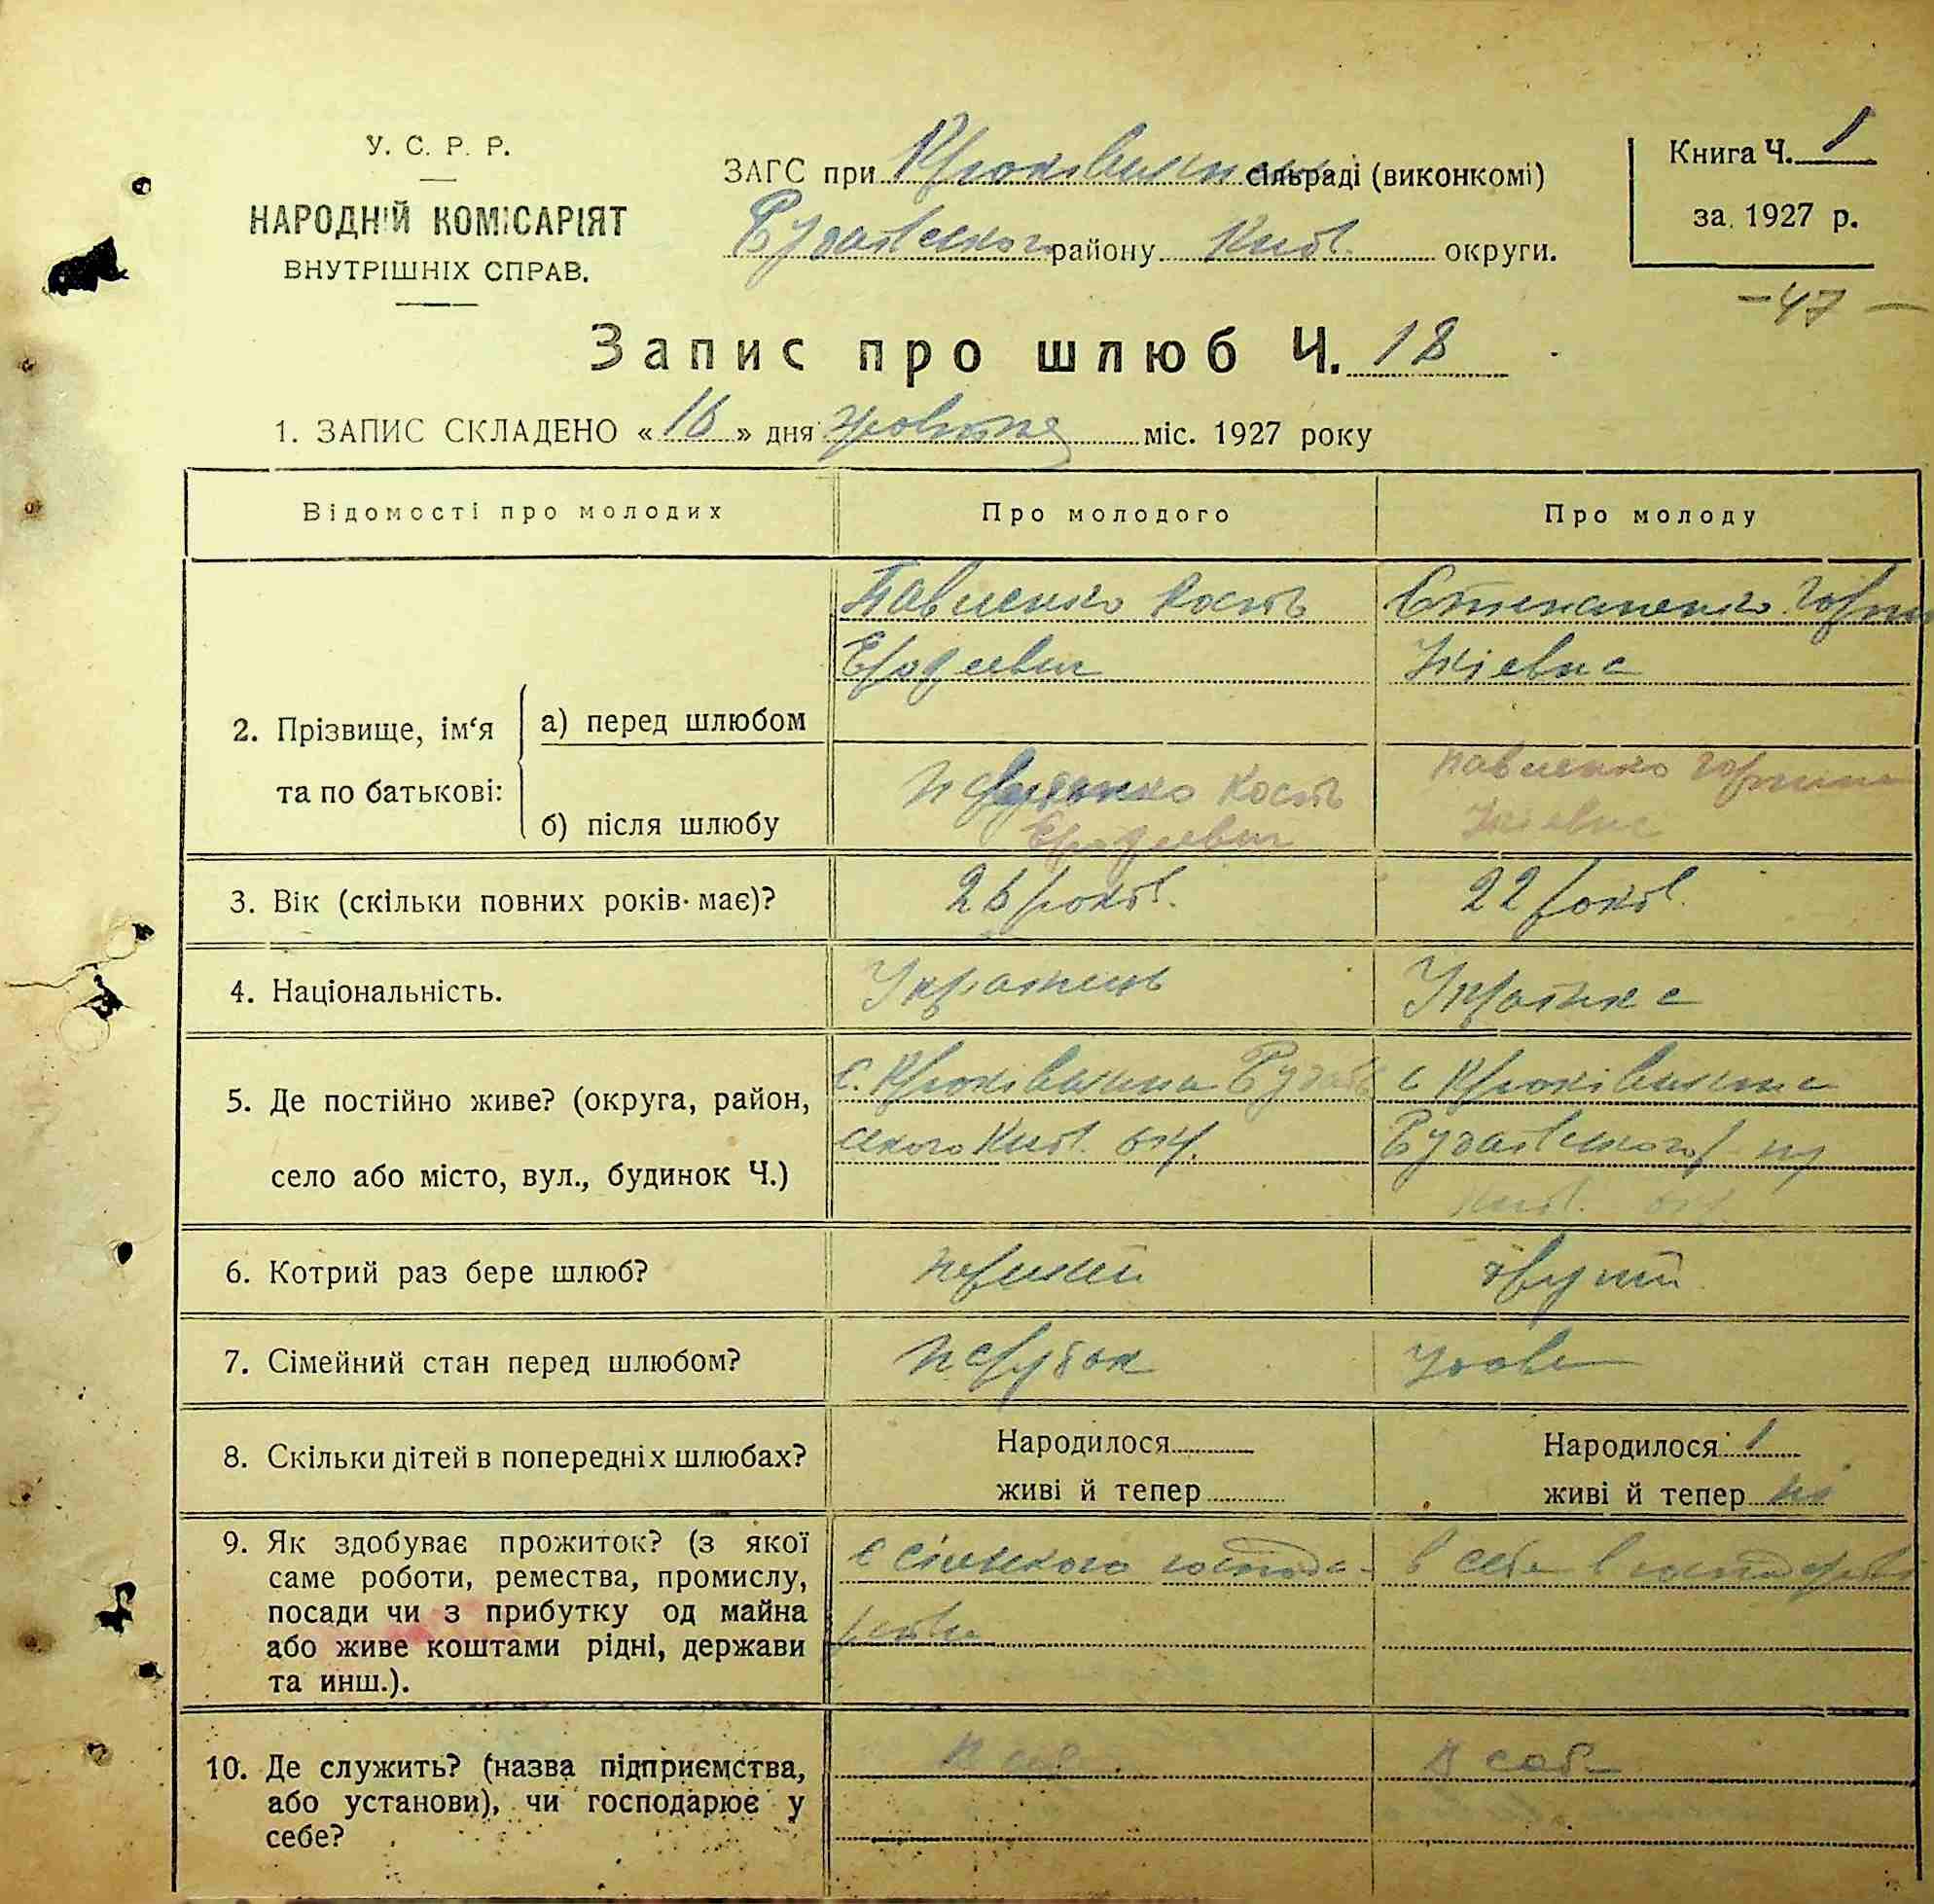 У. С. Р. Р.
НАРОДНІЙ КОМІСАРІЯТ
ВНУТРІШНІХ СПРАВ.
ЗАГС при Крюківщин сільраді (виконкомі)
Будаївського району Київ. округи.
Книга Ч. 1
за 1927 р.
– 47 –
Запис про шлюб Ч. 18
1. ЗАПИС СКЛАДЕНО « 16 » дня жовтня міс. 1927 року
Відомості про молодих Про молодого Про молоду
2. Прізвище, ім‘я та по батькові:
а) перед шлюбом
Павленко Кость
Степаненко Горпи
б) після шлюбу
Кость
Павленко Горпина
3. Вік (скільки повних років має)? 26 років. 22 років.
4. Національність. Українець Українка
5. Де постійно живе? (округа, район,
село або місто, вул., будинок Ч.)
с. Крюківщина Будаїв
ського Київ. окр.
с Крюківщина
Будаївського р
Київ. окр.
6. Котрий раз бере шлюб? перший другий
7. Сімейний стан перед шлюбом? парубок удова
8. Скільки дітей в попередніх шлюбах?
Народилося
живі й тепер
Народилося 1
живі й тепер ні
9. Як здобуває прожиток? (з якої
саме роботи, ремества, промислу,
посади чи з прибутку од майна
або живе коштами рідні, держави
та инш.).
с сільского господа-
рства
в себе в господарстві
10. Де служить? (назва підприємства,
або установи), чи господарює у
себе?
В себе
В себе